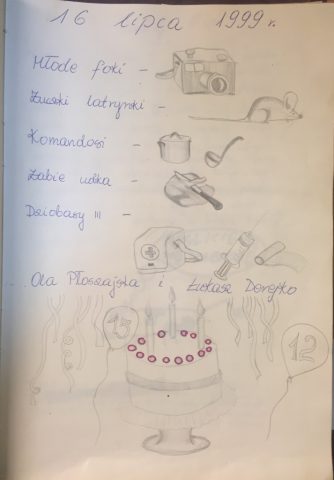 16 lipca 1999 r.
Młode foki -
Żuczki latrynki -
Komandosi -
Żabie udka -
Dziobasy III -
Ola Płoszajska i Łukasz Derejko
15
12